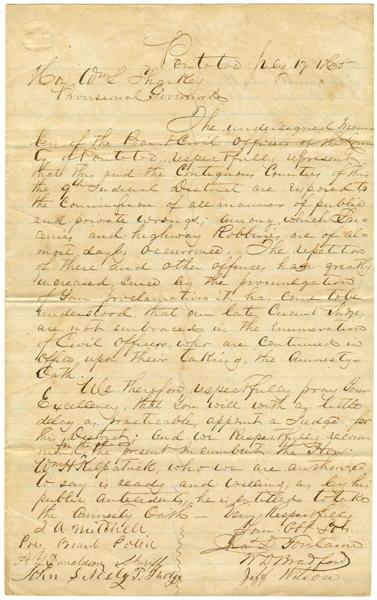 Pontotoc July 17 1865
Hon Wm L Sharkey
Provisional Governor
The undersigned Mem
bers of the Board Civil Officers of the Coun
ty of Pontotoc, respectfully represent
that this and the Contiguous Counties of this
the 9th Judicial District are exposed to
the Commission of all manner of public
and private wrongs, among which Lar
cenies and highway Robberies are of al-
most dayly occurrence. The repetition
of these and other offences has greatly
increased, since by the promulgation
of Your proclamation it has come to be
understood that our late Circuit Judges
are not embraced in the enumeration
of Civil Officers, who are continued in
Office, upon their taking, the Amnesty-
Oath.
We therefore, respectfully pray Your
Excellency, that You will with as little
delay as practicable, appoint a Judge for
this District; and we Respectfully recom
mend, for the place the present Incumbent, the Hon:
Wm H Kilpatrick, who we are authorized
to say is ready and willing, as by his
public Antecedents, he is entitled to take
the Amnesty Oath - Very Respectfully
Your Obt
J A Mitchell
Pres Board Police
Fontaine
A Y Donaldson Sheriff
W D Bradford
John S Neely P. Judge
Jeff Wilson